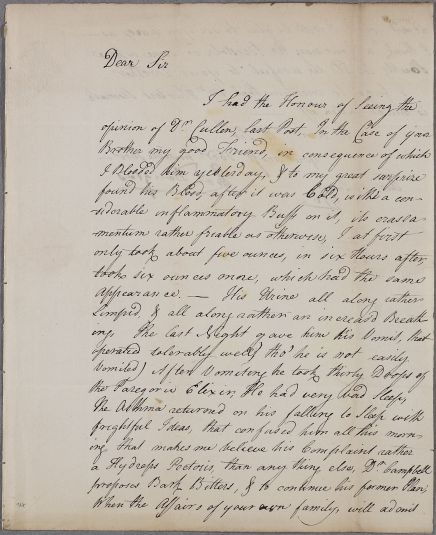 Dear Sir
I had the Honour of Seeing the
opinion of Dr Cullen, last Post. In the Case of your
Brother my good Friend, in consequence of which
I Blooded him yesterday, & to my great surprize
found his Blood, after it was Cold, with a con-
siderable inflammatory Buff on it, its crassa-
mentum rather friable as otherwise, I at first
only took about five ounces, in six Hours after
took six ounces more, which had the same
Appearance. — His Urine all along rather
Limpid, & all along rather an increasd Breath-
ing. The last Night gave him this Vomet, that
operated tolerably well (tho' he is not easily
Vomited) After Vomiting he took thirty Drops of
the Paregoric Elixir, He had very bad Sleep,
The Asthma returned on his falling to Sleep with
frightful Ideas, that confused him all this morn-
ing that makes me believe his Complaint rather
a Hydrops Pectoris, than any thing else, Dr Campbell
proposes Bark Bitters, & to continue his former Plan,
When the Affairs of your own family, will admit